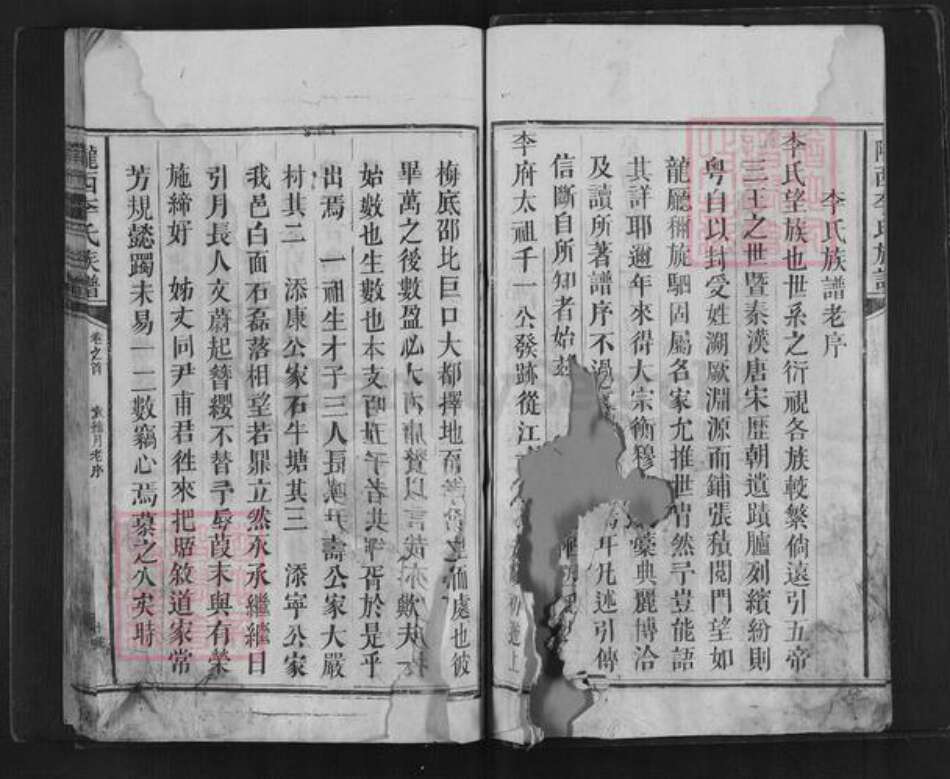 李氏族譜老序
李氏望族也世系之衍視各族較繁倘遠引五帝
三王之世暨秦漢唐宋歷朝遺蹟臚列繽紛則
粵自以封受姓溯厥淵源而鋪張積閥門望如
龍廳禰旎駟固屬名家尤推世胄然予豈能語
其詳耶邇年來得大宗衡穆 稾典麗博洽
及讀所著譜序不過 开凡述引傳
信斷自所知者始茲
李府太祖千一公發跡從江 上
梅底邵比巨口大都擇地而 處也彼
畢萬之後數盈必大 歟夫一
始數也生數也本支百世 者其 胥於是乎
出焉 一祖生才子三人長 尹壽公家大嚴
村其二 添康公家石牛塘其三 添寧公家
我邑白面石磊落相望若鼎立然永承繼繩目
引月長人文蔚起簪纓不替予辱葭末與有榮
施締好 姊丈同尹甫君徃來把晤敘道家常
芳規懿躅未易一二數竊心焉慕之久矣時
隴西李氏族譜 卷之首 老序